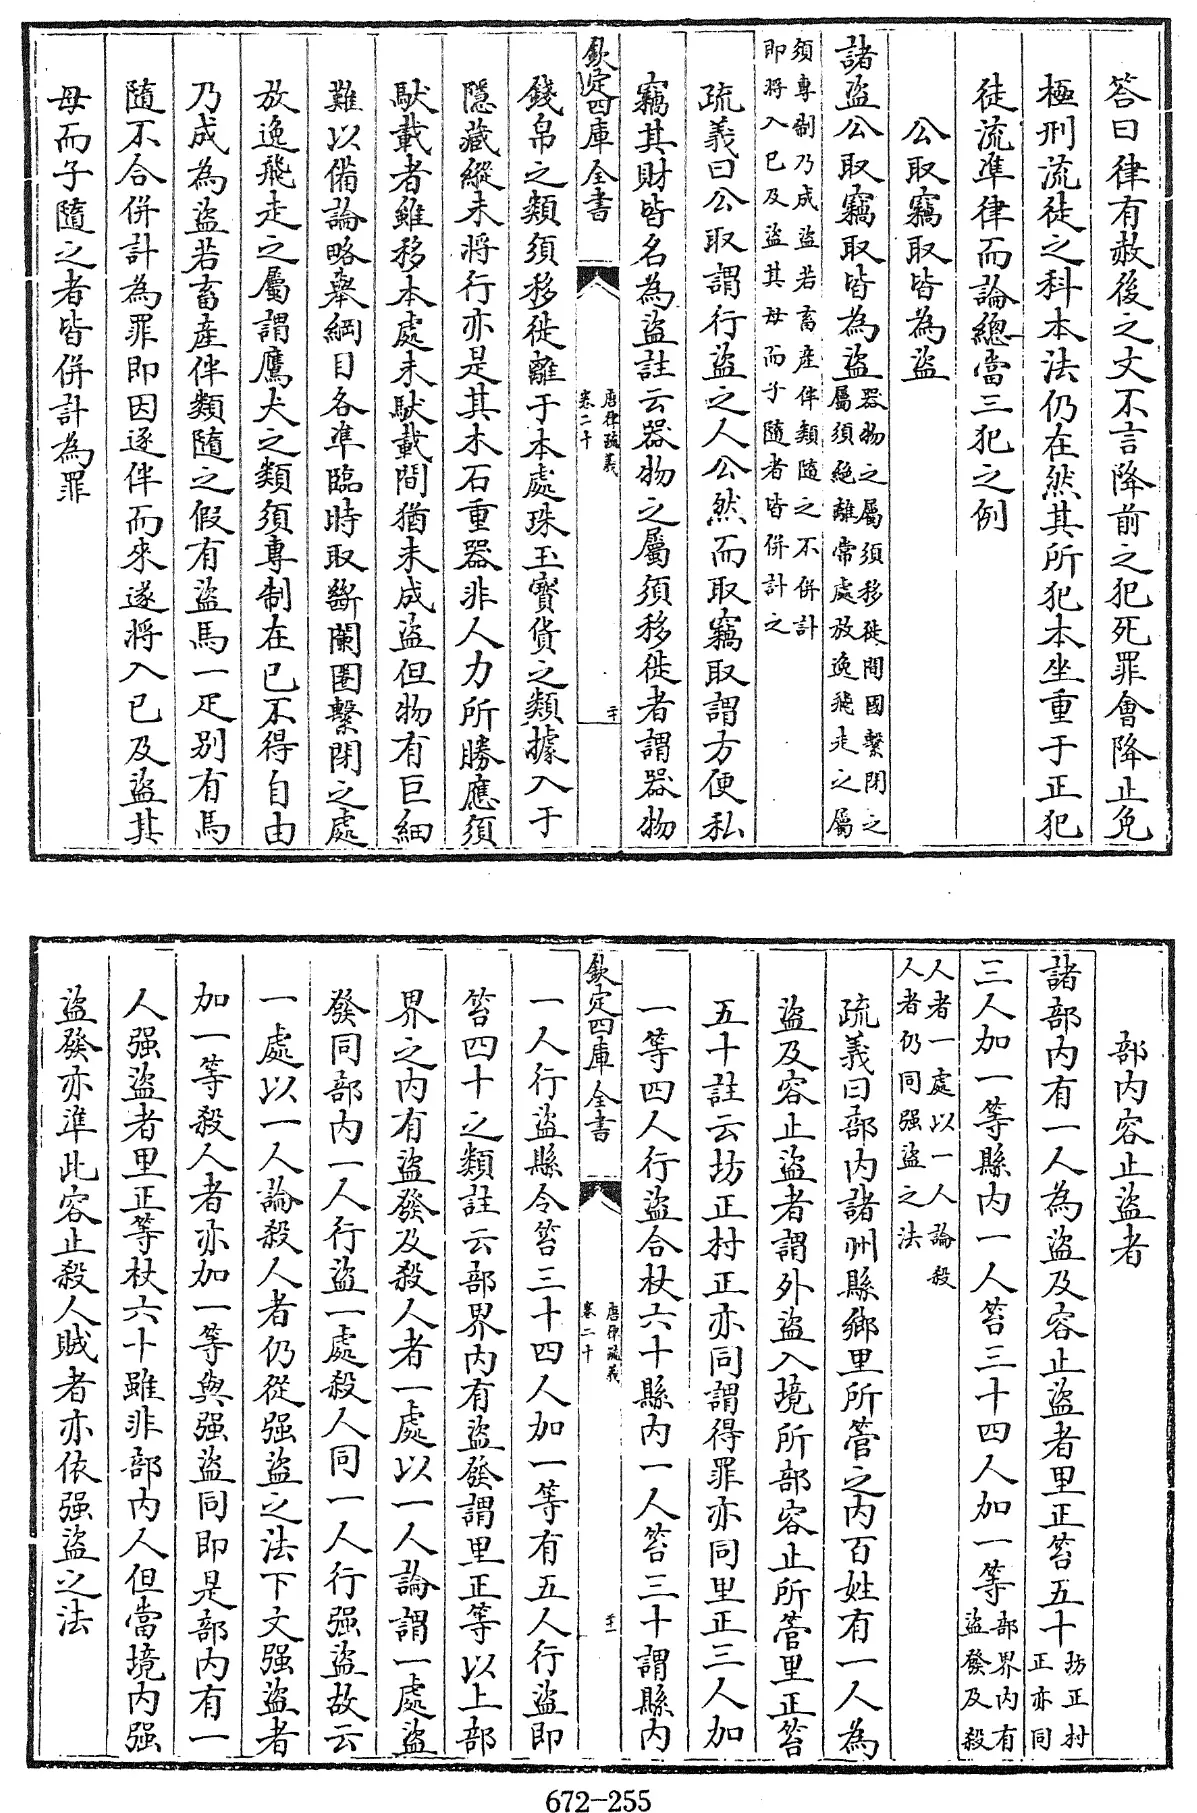 答曰律有赦後之文不言降前之犯死罪會降止免
極刑流徒之科本法仍在然其所犯本坐重于正犯
徒流準律而論總當三犯之例
公取竊取皆為盜
諸盜公取竊取皆為盜器物之屬須移徙闌圈繫閉之
屬須絶離常處放逸飛走之屬
須專制乃成盜若畜産伴類隨之不併計
即將入已及盜其母而子隨者皆併計之
疏義曰公取謂行盜之人公然而取竊取謂方便私
竊其財皆名為盜註云器物之屬須移徙者謂器物
欽定四庫全書
唐律疏義
卷二十
二十
錢帛之類須移徙離于本處珠玉寳貨之類據入于
隱藏縱未將行亦是其木石重器非人力所勝應須
馱載者雖移本處未馱載間猶未成盜但物有巨細
難以備論略舉綱目各準臨時取斷闌圈繫閉之處
放逸飛走之屬謂鷹犬之類須專制在已不得自由
乃成為盜若畜産伴類隨之假有盜馬一疋别有馬
隨不合併計為罪即因逐伴而來遂將入已及盜其
母而子隨之者皆併計為罪
部内容止盜者
諸部内有一人為盜及容止盜者里正笞五十坊正村
正亦同
三人加一等縣内一人笞三十四人加一等部界内有
盜發及殺
人者一處以一人論殺
人者仍同强盜之法
疏義曰部内諸州縣鄉里所管之内百姓有一人為
盜及容止盜者謂外盜入境所部容止所管里正笞
五十註云坊正村正亦同謂得罪亦同里正三人加
一等四人行盜合杖六十縣内一人笞三十謂縣内
欽定四庫全書
唐律疏義
卷二十
二十一
一人行盜縣令笞三十四人加一等有五人行盜即
笞四十之類註云部界内有盜發謂里正等以上部
界之内有盜發及殺人者一處以一人論謂一處盜
發同部内一人行盜一處殺人同一人行强盜故云
一處以一人論殺人者仍從强盜之法下文强盜者
加一等殺人者亦加一等與强盜同即是部内有一
人强盜者里正等杖六十雖非部内人但當境内强
盜發亦準此容止殺人賊者亦依强盜之法
672-255